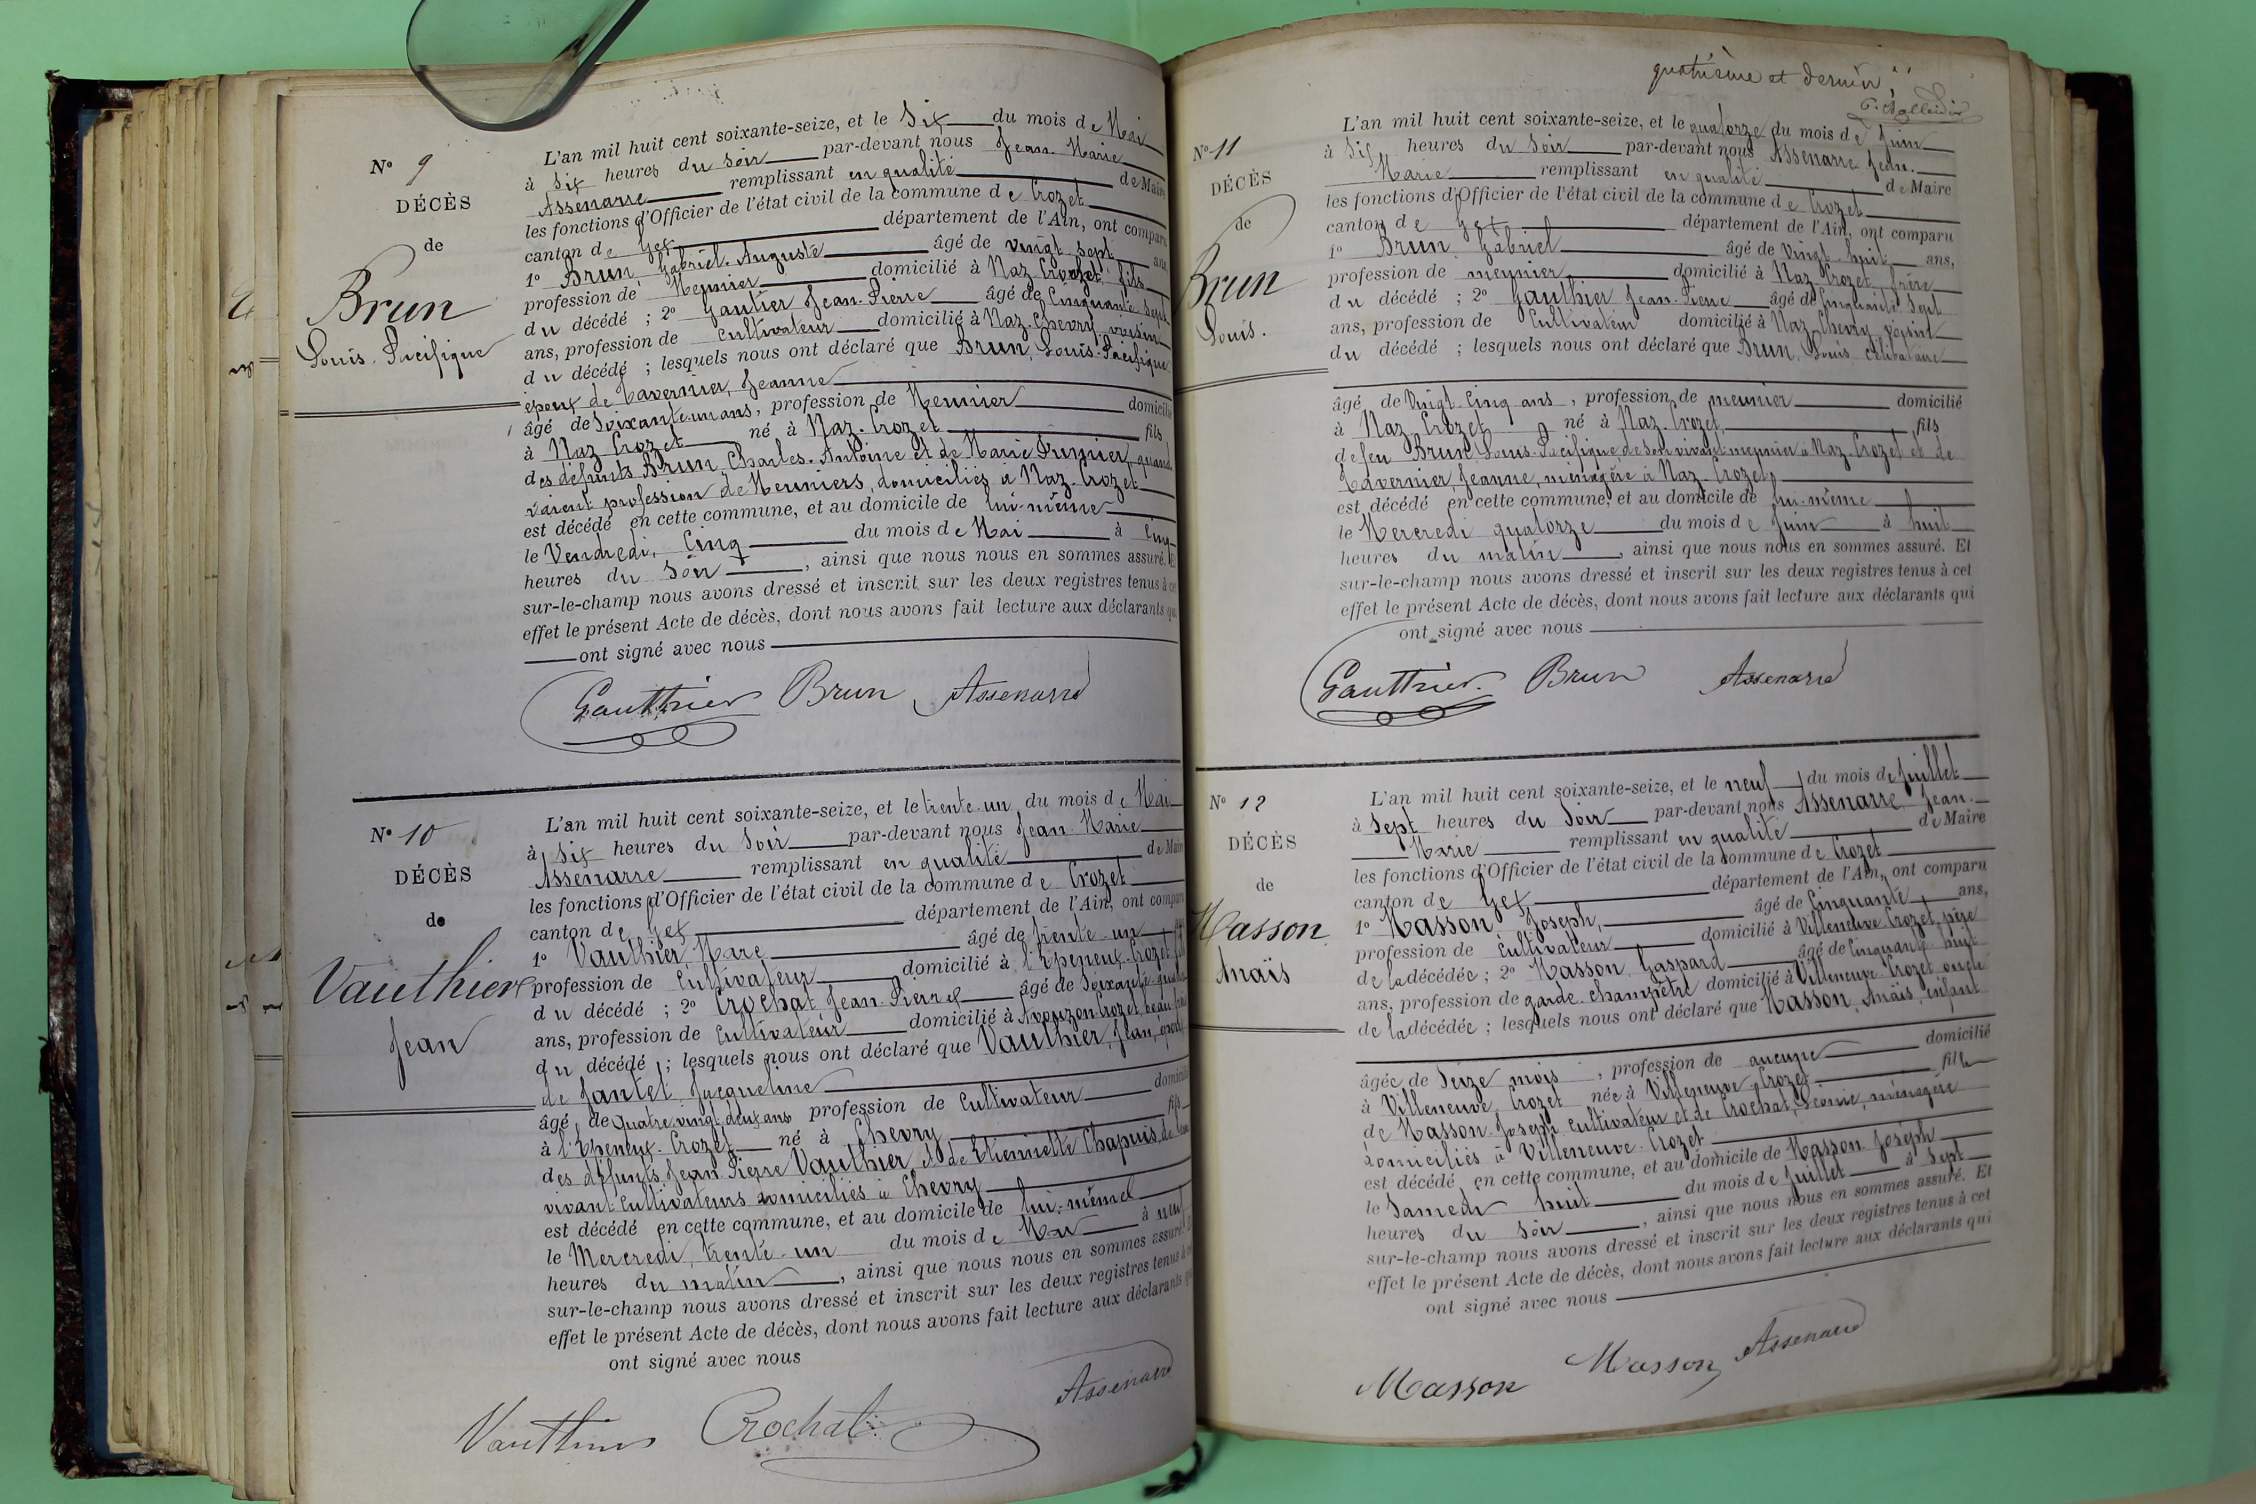 N° 9
DÉCÈS
de
Brun
Louis. Pacifique
L'an mil huit cent soixante-seize, et le Six du mois de Mai
à Six heures du Soir par-devant nous Jean-Marie
Assenarre remplissant en qualité de Maire
les fonctions d'Officier de l'état civil de la commune de Crozet
canton de Gex département de l'Ain, ont comparu
1° Brun Gabriel-Auguste âgé de vingt-sept ans
profession de Meunier domicilié à Naz-Crozet, fils
du décédé ; 2° Gautier Jean-Pierre âgé de Cinquante sept
ans, profession de Cultivateur domicilié à Naz-Chevry, voisin
du décédé ; lesquels nous ont déclaré que Brun, Louis-Pacifique
époux de Tavernier, Jeanne
âgé de Soixante-un ans, profession de Meunier domicilié
à Naz Crozet né à Naz-Crozet fils
des défunts Brun, Charles-Antoine et de Marie quand
vivaient profession de Meuniers, domiciliés à Naz-Crozet
est décédé en cette commune, et au domicile de lui-même
le Vendredi, Cinq du mois de Mai à Cinq
heures du Soir, ainsi que nous nous en sommes assuré. Et
sur-le-champ nous avons dressé et inscrit sur les deux registres tenus à cet
effet le présent Acte de décès, dont nous avons fait lecture aux déclarants qui
ont signé avec nous
Gautthier Brun Assenarre
N° 10
DÉCÈS
de
Vauthier
Jean
L'an mil huit cent soixante-seize, et le trente-un du mois de Mai
à Six heures du Soir par-devant nous Jean-Marie
Assenarre remplissant en qualité de Maire
les fonctions d'Officier de l'état civil de la commune de Crozet
canton de Gex département de l'Ain, ont comparu
1° Vauthier, Marc âgé de trente-un ans
profession de Cultivateur domicilié à l'Epeneux-Crozet
du décédé ; 2° Crochat Jean-Pierre âgé de Soixante
ans, profession de Cultivateur domicilié à Avouzon-Crozet, beau
du décédé ; lesquels nous ont déclaré que Vauthier, Jean, époux
de Jantet Jacqueline
âgé de Quatre-vingt-deux ans profession de Cultivateur domicilié
à l'Epeneux-Crozet né à Chevry fils
des défunts Jean Pierre Vauthier et de Etiennette Chapuis, de leur
vivant Cultivateurs domiciliés à Chevry
est décédé en cette commune, et au domicile de lui-même
le Mercredi, trente-un du mois de Mai à neuf
heures du matin, ainsi que nous nous en sommes assuré.
sur-le-champ nous avons dressé et inscrit sur les deux registres tenus à
effet le présent Acte de décès, dont nous avons fait lecture aux déclarants
ont signé avec nous
Vautthier Crochat Assenarre
quatrième et dernier
N° 11
DÉCÈS
de
Brun
Louis.
L'an mil huit cent soixante-seize, et le quatorze du mois de Juin
à Six heures du Soir par-devant nous Assenarre Jean-
Marie remplissant en qualité de Maire
les fonctions d'Officier de l'état civil de la commune de Crozet
canton de Gex département de l'Ain, ont comparu
1° Brun Gabriel âgé de Vingt-huit ans,
profession de meunier domicilié à Naz-Crozet, frère
du décédé ; 2° Gauthier Jean-Pierre âgé de Cinquante Sept
ans, profession de Cultivateur domicilié à Naz-Chevry, voisin
du décédé ; lesquels nous ont déclaré que Brun, Louis célibataire
âgé de Vingt-Cinq ans, profession de meunier domicilié
à Naz Crozet né à Naz-Crozet, fils
de feu Brun, Louis-Pacifique, de son vivant meunier à Naz-Crozet et de
Tavernier, Jeanne, ménagère à Naz-Crozet,
est décédé en cette commune, et au domicile de lui-même
le Mercredi quatorze du mois de Juin à huit
heures du matin, ainsi que nous nous en sommes assuré. Et
sur-le-champ nous avons dressé et inscrit sur les deux registres tenus à cet
effet le présent Acte de décès, dont nous avons fait lecture aux déclarants qui
ont signé avec nous
Gautthier. Brun Assenarre
N° 12
DÉCÈS
de
Masson
Anaïs
L'an mil huit cent soixante-seize, et le neuf du mois de Juillet
à Sept heures du Soir par-devant nous Assenarre Jean-
Marie remplissant en qualité de Maire
les fonctions d'Officier de l'état civil de la commune de Crozet
canton de Gex département de l'Ain, ont comparu
1° Masson, Joseph, âgé de Cinquante ans,
profession de Cultivateur domicilié à Villeneuve-Crozet, père
de la décédée ; 2° Masson, Gaspard âgé de Cinquante huit
ans, profession de garde-champêtre domicilié à Villeneuve-Crozet, oncle
de la décédée ; lesquels nous ont déclaré que Masson, Anaïs, enfant
âgée de Seize mois, profession de aucune domicilié
à Villeneuve, Crozet née à Villeneuve, Crozet fille
de Masson Joseph Cultivateur et de Crochat, ménagère
domiciliés à Villeneuve-Crozet
est décédé en cette commune, et au domicile de Masson Joseph
le Samedi huit du mois de Juillet à Sept
heures du Soir, ainsi que nous nous en sommes assuré. Et
sur-le-champ nous avons dressé et inscrit sur les deux registres tenus à cet
effet le présent Acte de décès, dont nous avons fait lecture aux déclarants qui
ont signé avec nous
Masson Masson Assenarre